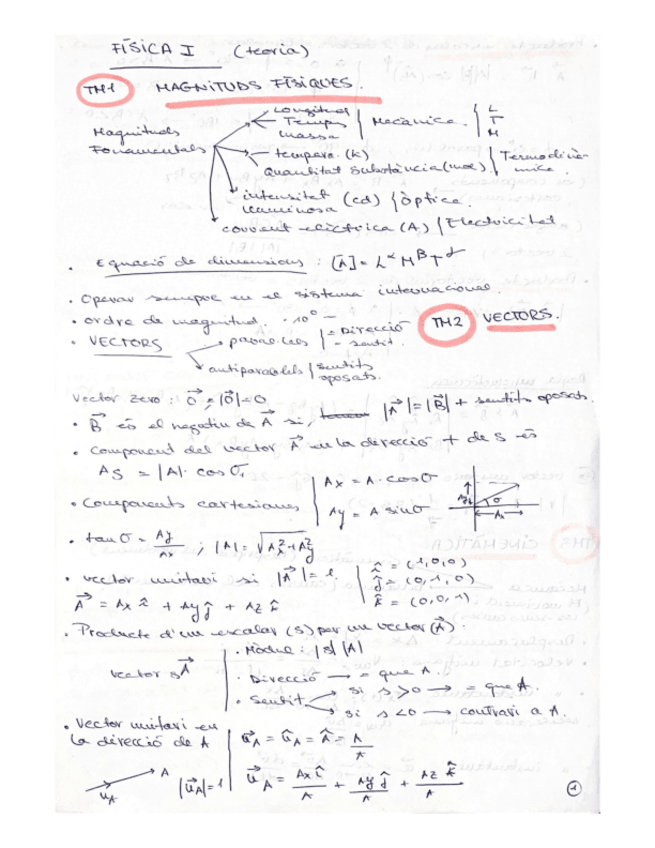 FÍSICA I (teoria)
TM1 MAGNITUDS FÍSIQUES.
Magnituds Fonamentals
Longitud
Temps
massa
Mecànica.
L
T
M
tempera. (K)
Quantitat Substància (mol)
Termodinàmica.
intensitat (cd) | Òptica
lluminosa
corrent elèctrica (A) | Electricitat
· Equació de dimensions : [A] = L^α M^β T^γ
· Operar sempre en el sistema internacional.
· ordre de magnitud. · 10⁰ —
TM2 VECTORS.
· VECTORS
paral·lels | = Direcció
= sentit.
antiparal·lels | sentits
oposats.
Vector zero : 0⃗ , |0⃗| = 0
· B⃗ és el negatiu de A⃗ si, |A⃗| = |B⃗| + sentits oposats.
· Component del vector A⃗ en la direcció + de S és
A_S = |A| · cos σ,
· Components cartesianes
A_x = A · cos σ
A_y = A sin σ
· tan σ = A_y / A_x ; |A| = √(A_x² + A_y²)
· vector unitari si |A⃗| = 1.
î = (1,0,0)
ĵ = (0,1,0)
k̂ = (0,0,1)
A⃗ = A_x î + A_y ĵ + A_z k̂
· Producte d'un escalar (s) per un vector (A⃗) :
vector sA⃗
· Mòdul : |s| |A|
· Direcció → = que A.
· Sentit
si s > 0 → = que A.
si s < 0 → contrari a A.
· Vector unitari en
la direcció de A
u⃗_A = û_A = Â = A / A
u⃗_A = A_x î / A + A_y ĵ / A + A_z k̂ / A
u_A A |u⃗_A| = 1
1